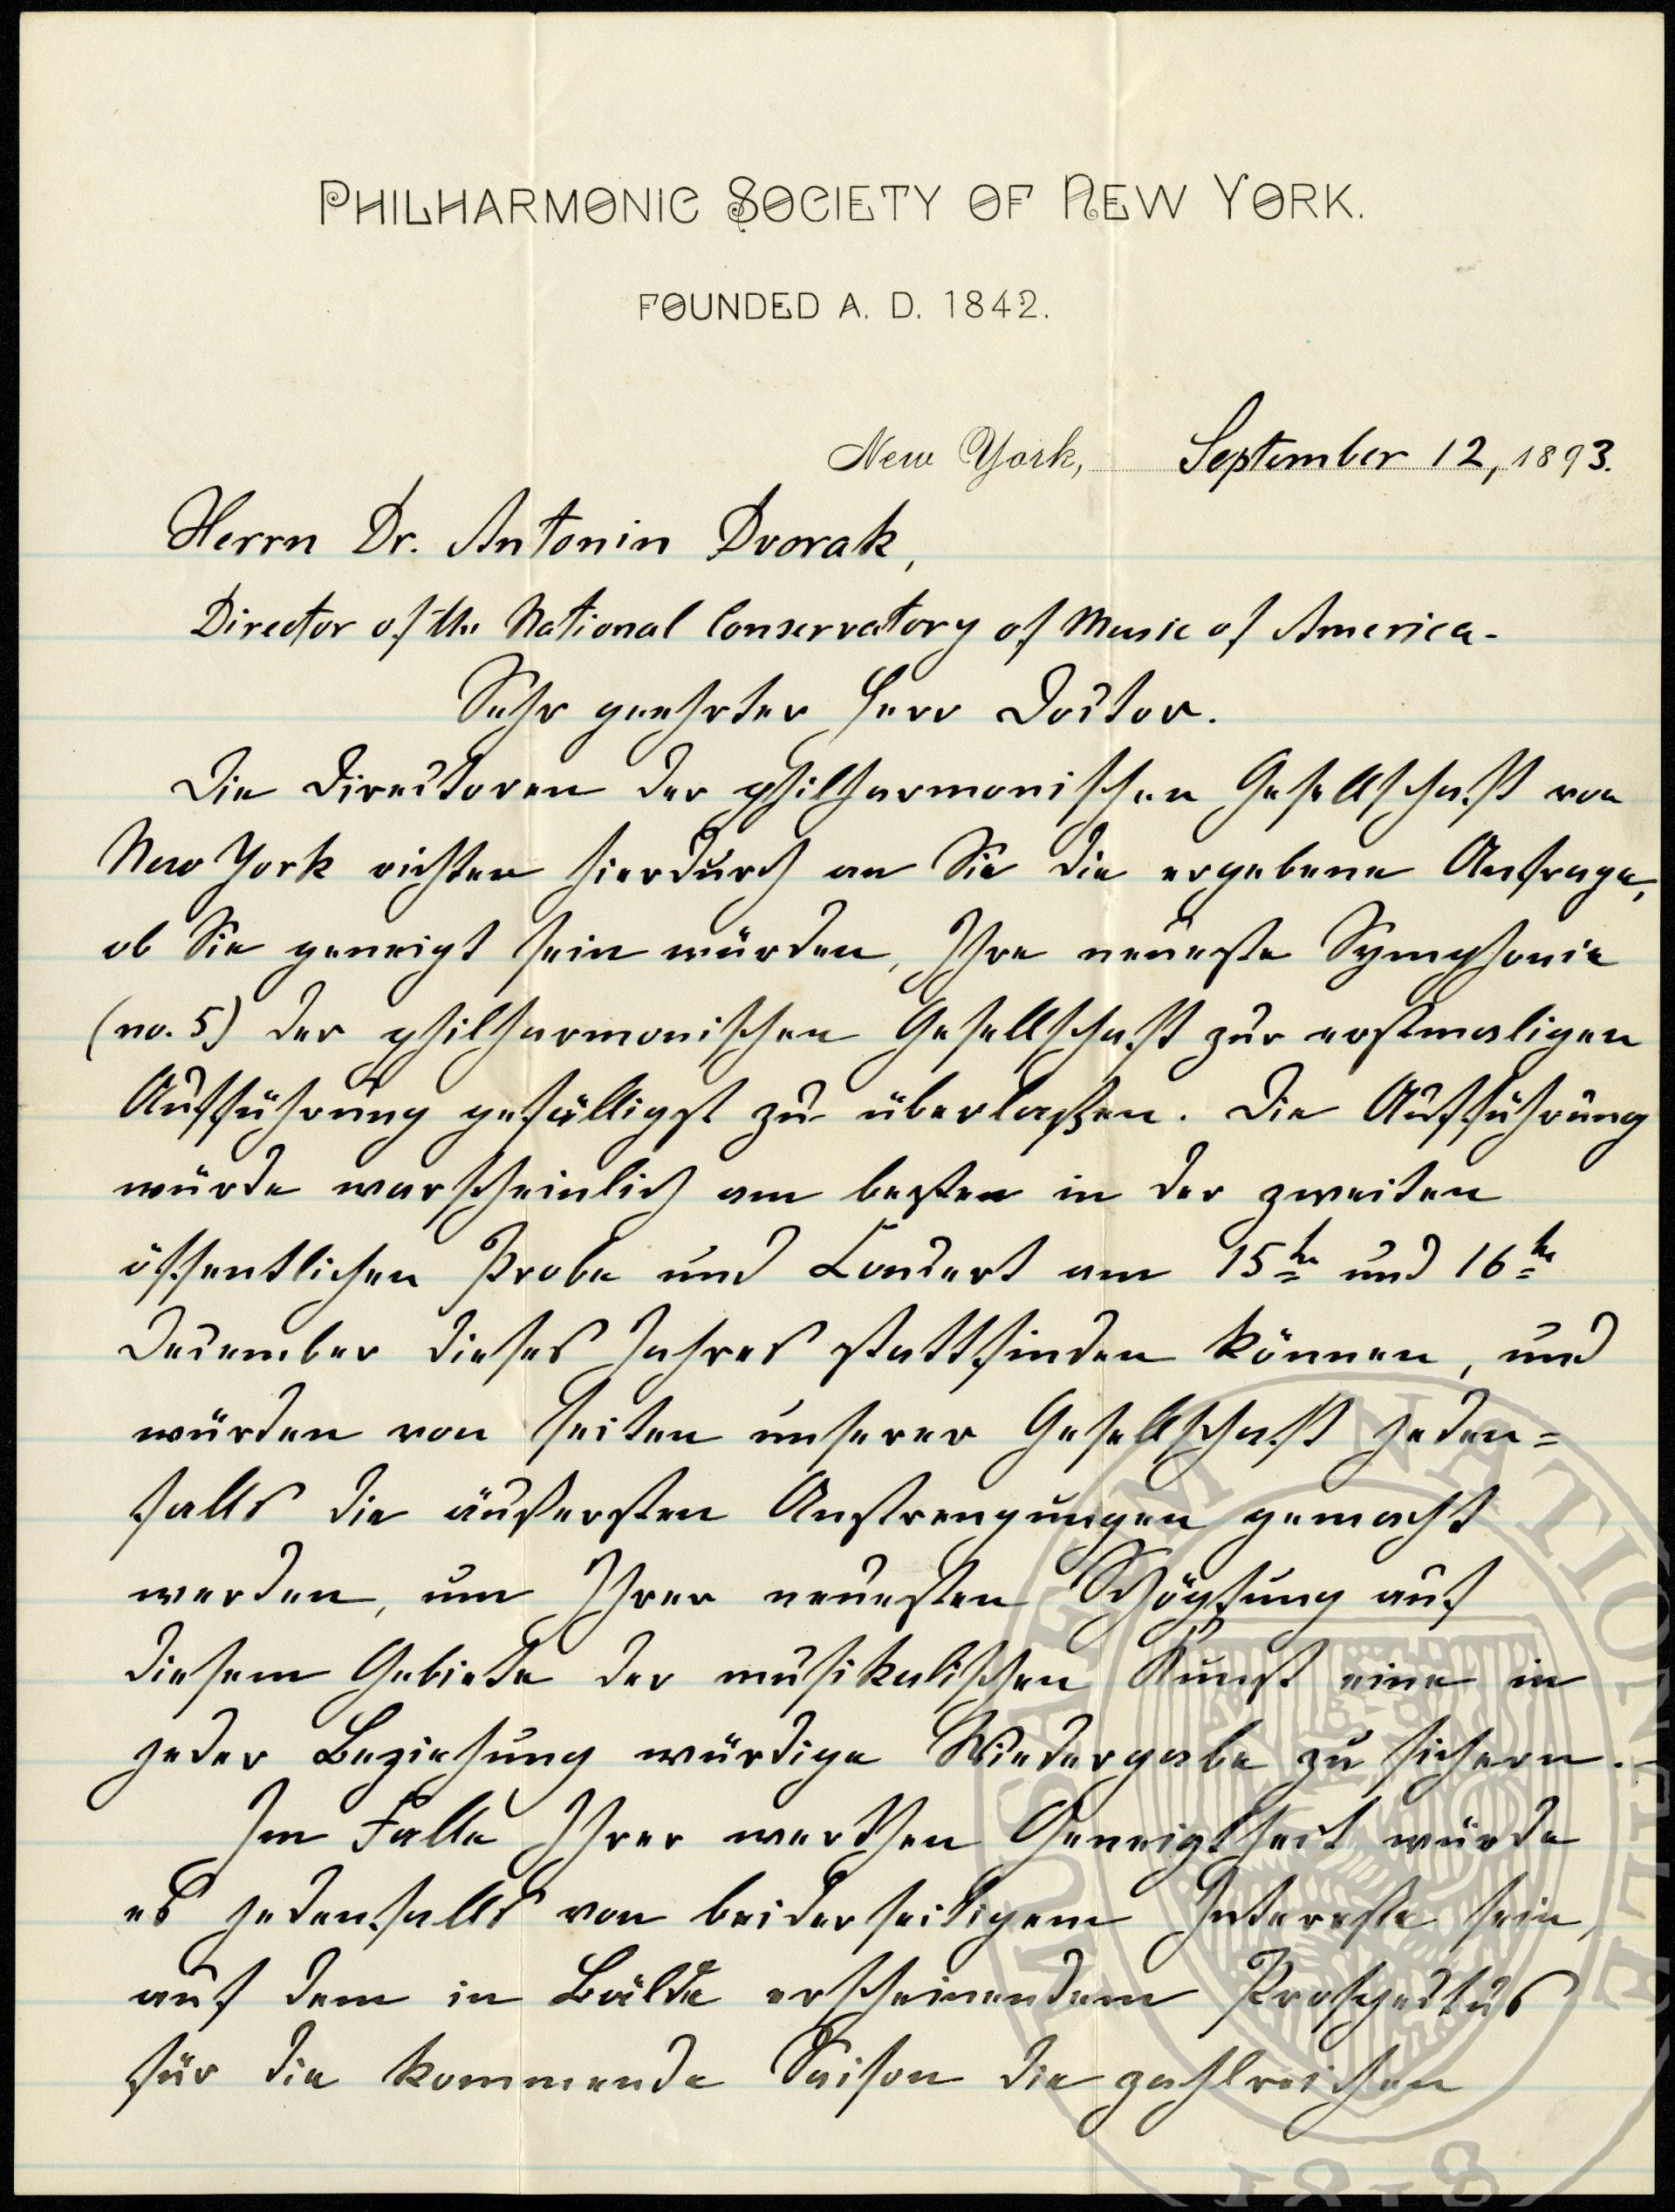 PHILHARMONIC SOCIETY OF NEW YORK.
FOUNDED A. D. 1842.
New York, September 12, 1893.
Herrn Dr. Antonin Dvorak,
Director of the National Conservatory of Music of America.
Sehr geehrter Herr Doctor.
Die Directoren der philharmonischen Gesellschaft von
New York richten hierdurch an Sie die ergebene Anfrage,
ob Sie geneigt sein würden, Ihre neueste Symphonie
(no. 5) der philharmonischen Gesellschaft zur erstmaligen
Aufführung gefälligst zu überlaßen. Die Aufführung
würde warscheinlich am besten in der zweiten
öffentlichen Probe und Concert am 15ten und 16ten
December dieses Jahres stattfinden können, und
würden von seiten unserer Gesellschaft jeden=
falls die äußersten Anstrengungen gemacht
werden, um Ihrer neuesten Schöpfung auf
diesem Gebiete der musikalischen Kunst eine in
jeder Beziehung würdige Wiedergabe zu sichern.
Im Falle Ihrer werthen Geneigtheit würde
es jedenfalls von beiderseitigem Interesse sein,
auf dem in Bälde erscheinendem Prospectus
für die kommende Saison die zahlreichen
MUSAEUM NATIONALE
1818